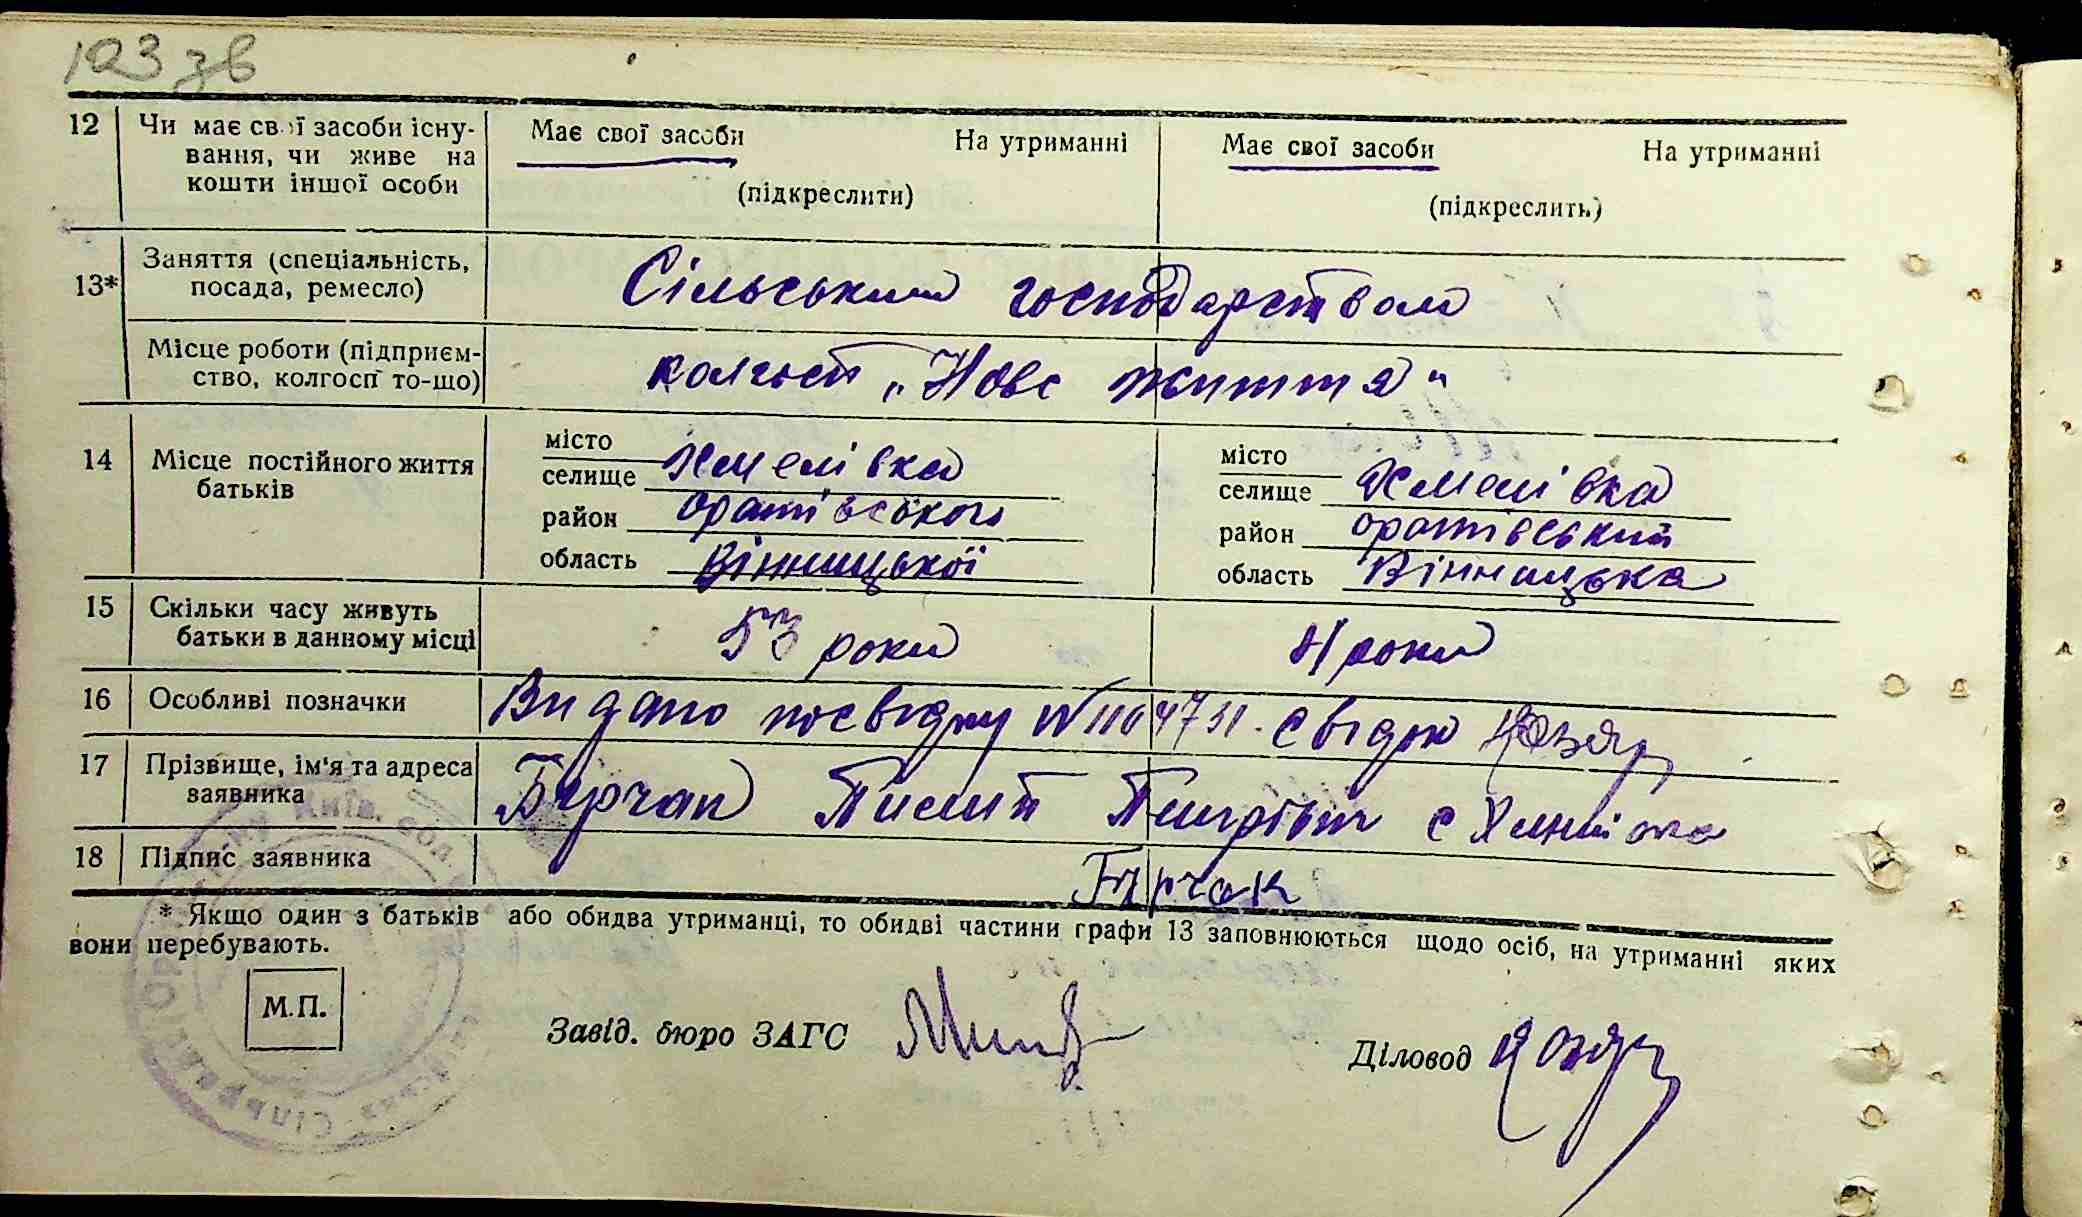 123 зв
12 Чи має свої засоби існу-
вання, чи живе на
кошти іншої особи
Має свої засоби На утриманні
(підкреслити)
Має свої засоби На утриманні
(підкреслить)
13* Заняття (спеціальність,
посада, ремесло)
Сільським господарством
Місце роботи (підприєм-
ство, колгосп то-що)
колгосп „Нове життя"
14 Місце постійного життя
батьків
місто
селище Хмелівка
район оратівського
область Вінницької
місто
селище Хмелівка
район оратівський
область Вінницька
15 Скільки часу живуть
батьки в данному місці
53 роки
роки
16 Особливі позначки
Видано посвідку свідок
17 Прізвище, ім'я та адреса
заявника
Бурчак с
18 Підпис заявника
Бурчак
* Якщо один з батьків або обидва утриманці, то обидві частини графи 13 заповнюються щодо осіб, на утриманні яких
вони перебувають.
М.П.
Завід. бюро ЗАГС
Діловод